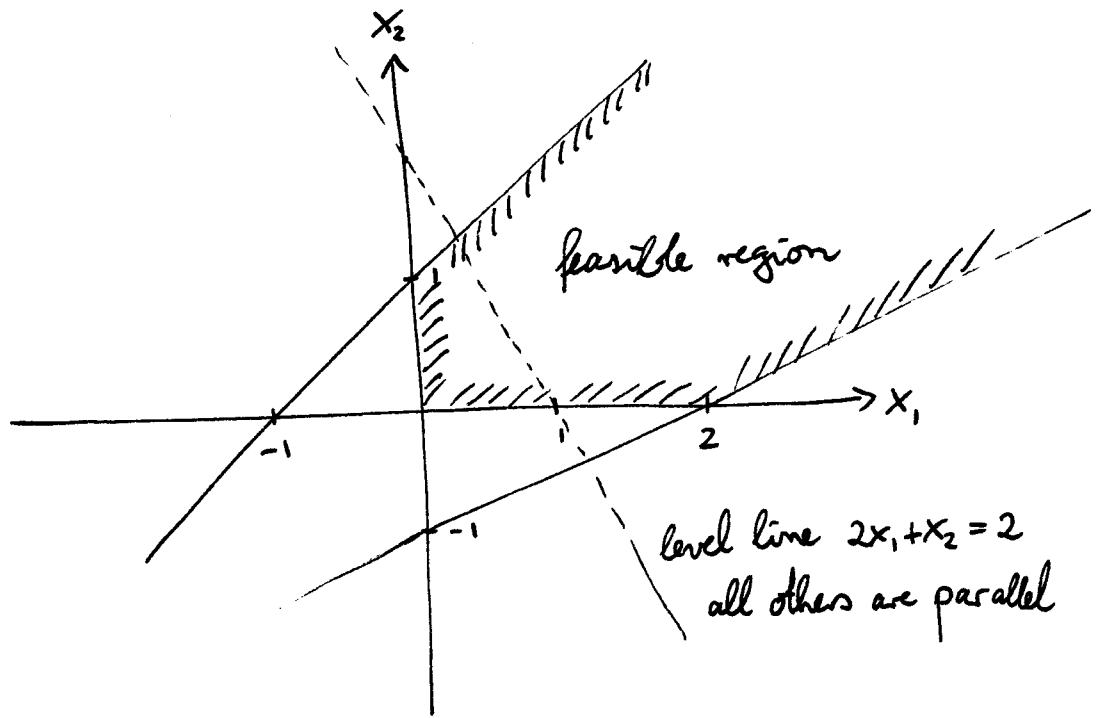 X₂
1
feasible region
X₁
-1
1
2
-1
level line 2x₁+x₂=2
all others are parallel